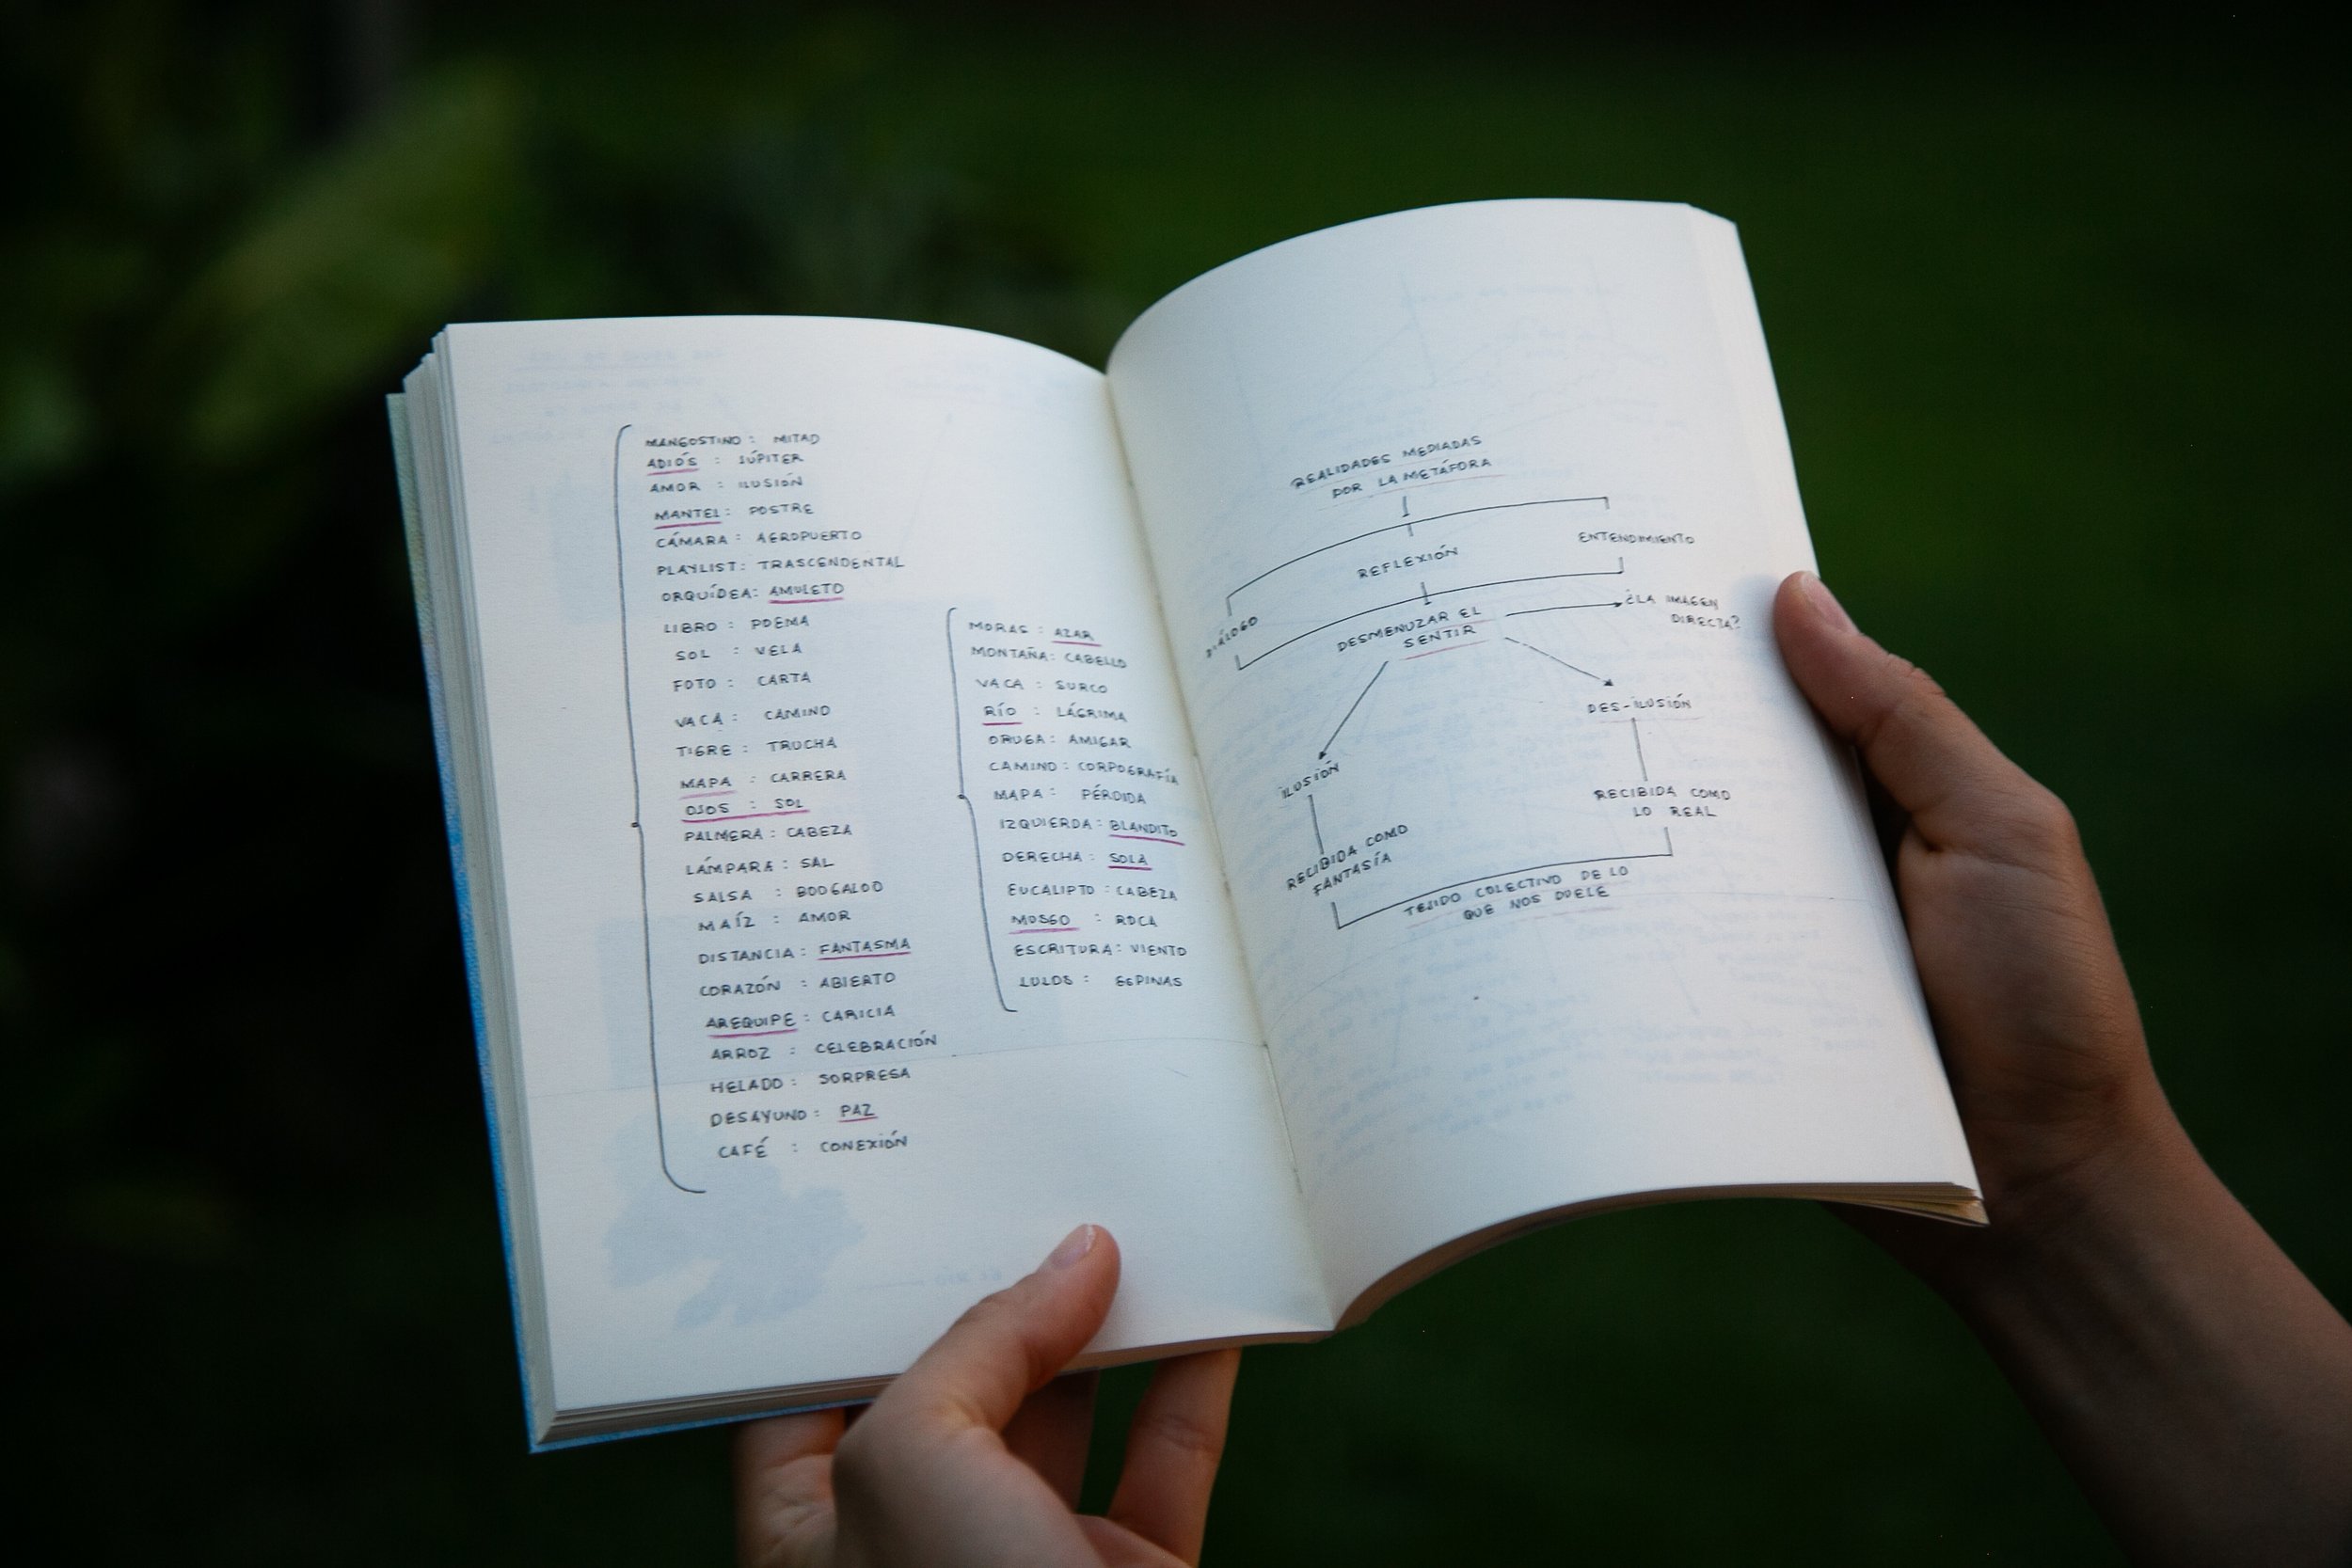 MANGOSTINO : MITAD
ADIÓS : JÚPITER
AMOR : ILUSIÓN
MANTEL : POSTRE
CÁMARA : AEROPUERTO
PLAYLIST : TRASCENDENTAL
ORQUÍDEA : AMULETO
LIBRO : POEMA
SOL : VELA
FOTO : CARTA
VACA : CAMINO
TIGRE : TRUCHA
MAPA : CARRERA
OJOS : SOL
PALMERA : CABEZA
LÁMPARA : SAL
SALSA : BOOGALOO
MAÍZ : AMOR
DISTANCIA : FANTASMA
CORAZÓN : ABIERTO
AREQUIPE : CARICIA
ARROZ : CELEBRACIÓN
HELADO : SORPRESA
DESAYUNO : PAZ
CAFÉ : CONEXIÓN
MORAS : AZAR
MONTAÑA : CABELLO
VACA : SURCO
RÍO : LÁGRIMA
ORUGA : AMIGAR
CAMINO : CORPOGRAFÍA
MAPA : PÉRDIDA
IZQUIERDA : BLANDITO
DERECHA : SOLA
EUCALIPTO : CABEZA
MUSGO : ROCA
ESCRITURA : VIENTO
LULOS : ESPINAS
REALIDADES MEDIADAS
POR LA METÁFORA
DIÁLOGO
REFLEXIÓN
ENTENDIMIENTO
DESMENUZAR EL
SENTIR
¿LA IMAGEN
DIRECTA?
ILUSIÓN
DES-ILUSIÓN
RECIBIDA COMO
FANTASÍA
RECIBIDA COMO
LO REAL
TEJIDO COLECTIVO DE LO
QUE NOS DUELE